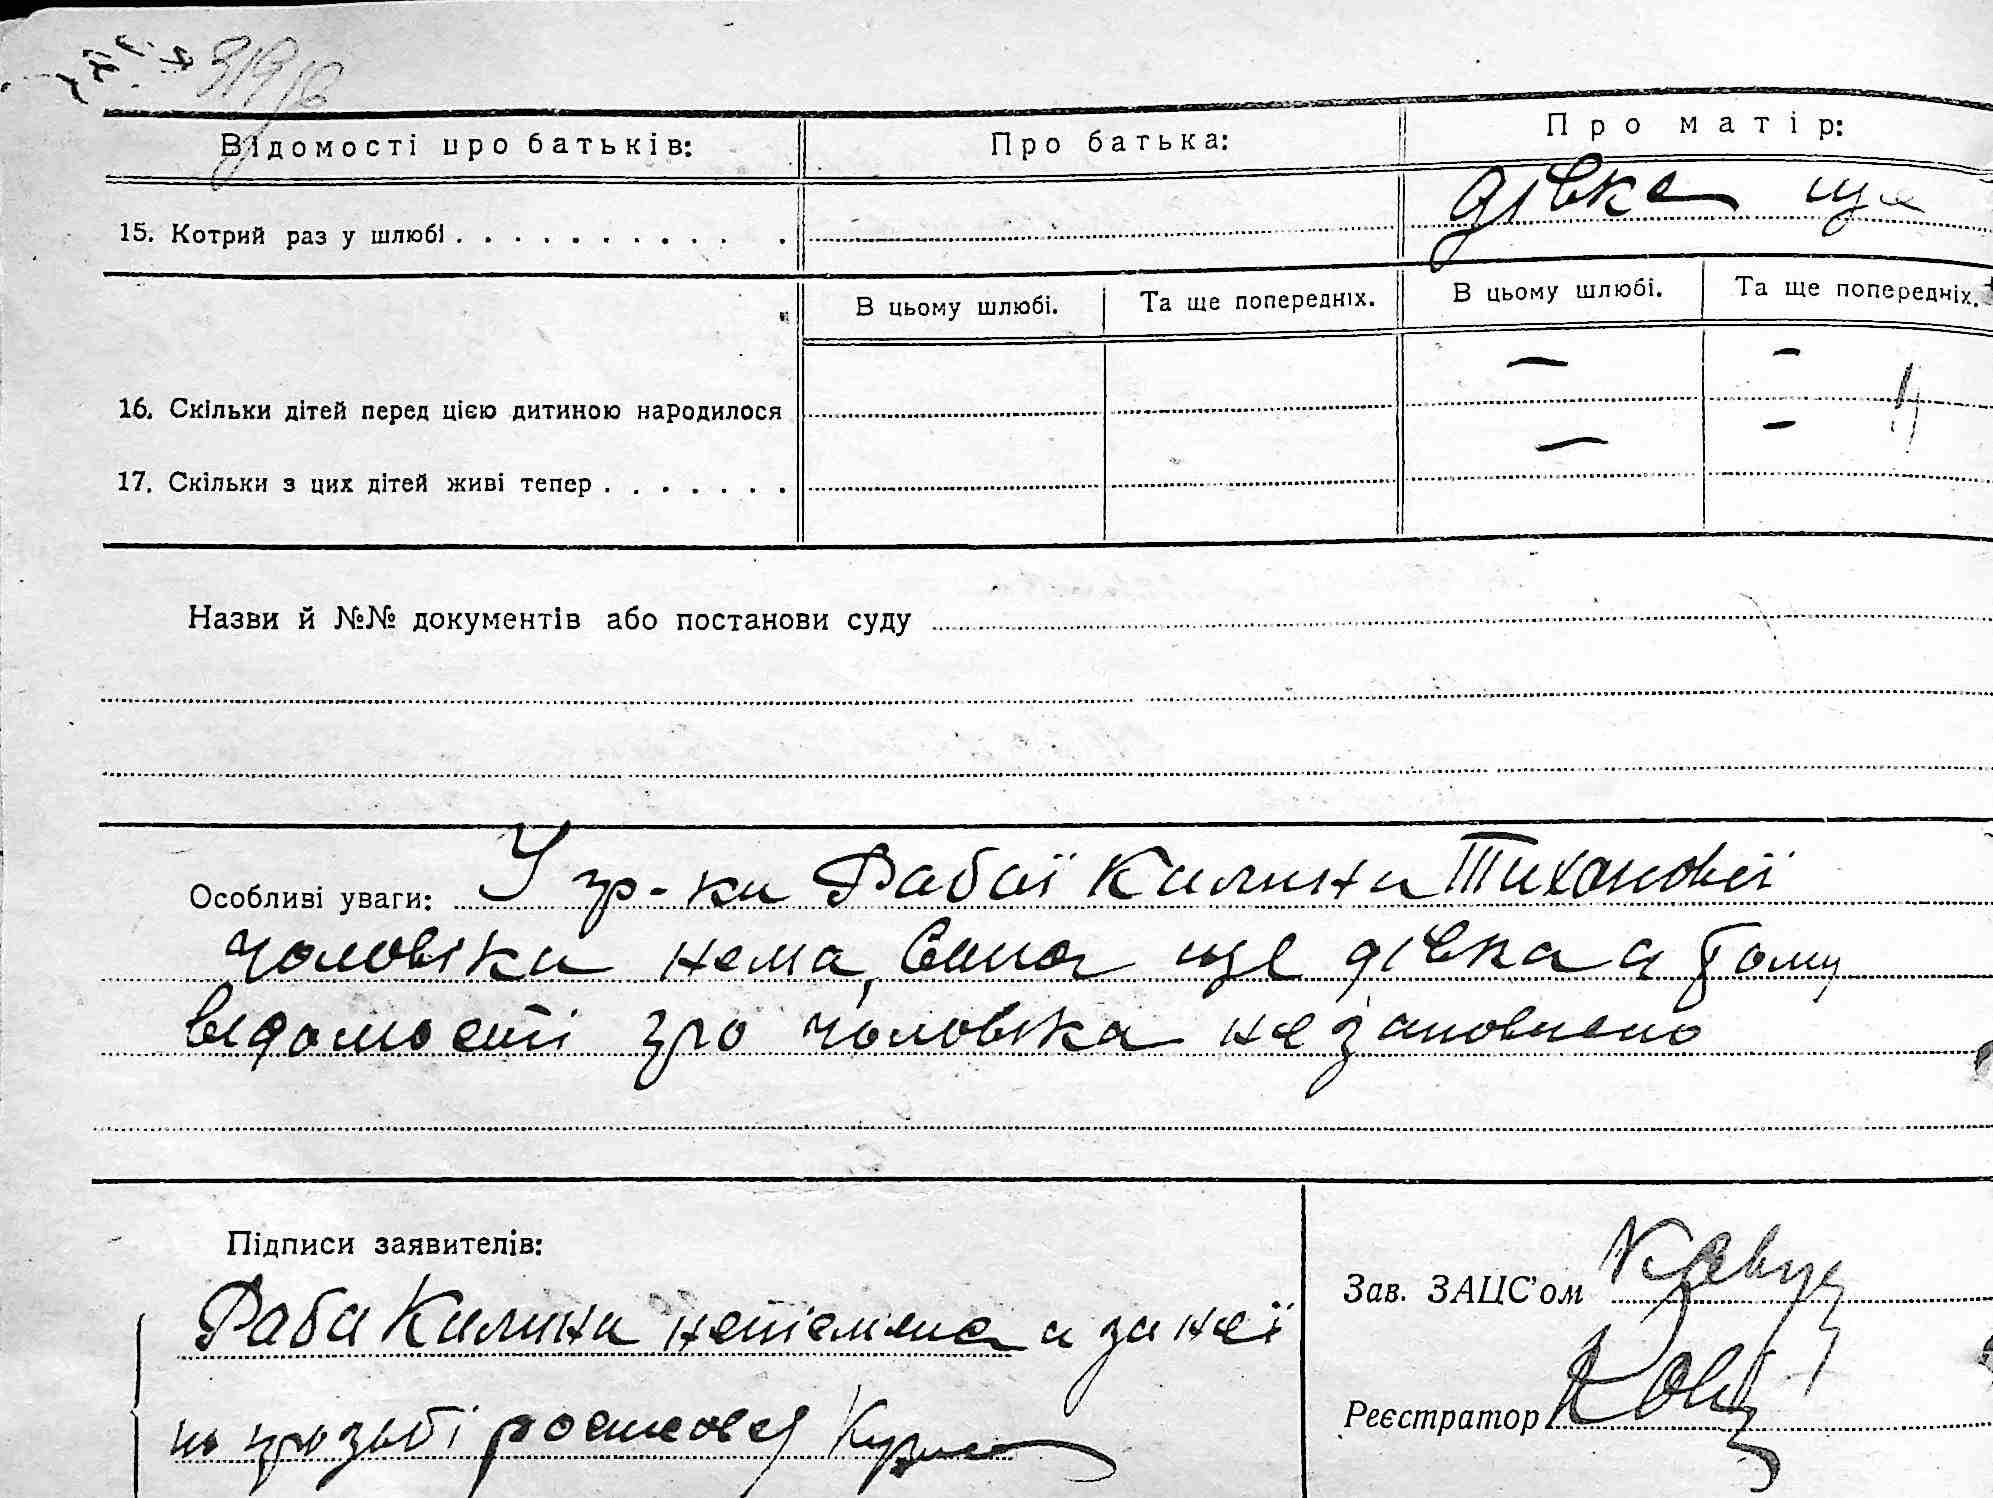 319
Відомості про батьків: Про батька: Про матір:
15. Котрий раз у шлюбі . . . . . . . . . . . . дівка ще
В цьому шлюбі. Та ще попередніх. В цьому шлюбі. Та ще попередніх.
16. Скільки дітей перед цією дитиною народилося — —
17. Скільки з цих дітей живі тепер . . . . . . . — —
Назви й №№ документів або постанови суду
Особливі уваги: У гр-ки Рабої Килини Тихоновеї
чоловіка нема, вона ще дівка а тому
відомості про чоловіка не заповнено
Підписи заявителів:
Раба Килина неписмена а за неї
по прозьбі росписавсь
Зав. ЗАЦС'ом
Реєстратор